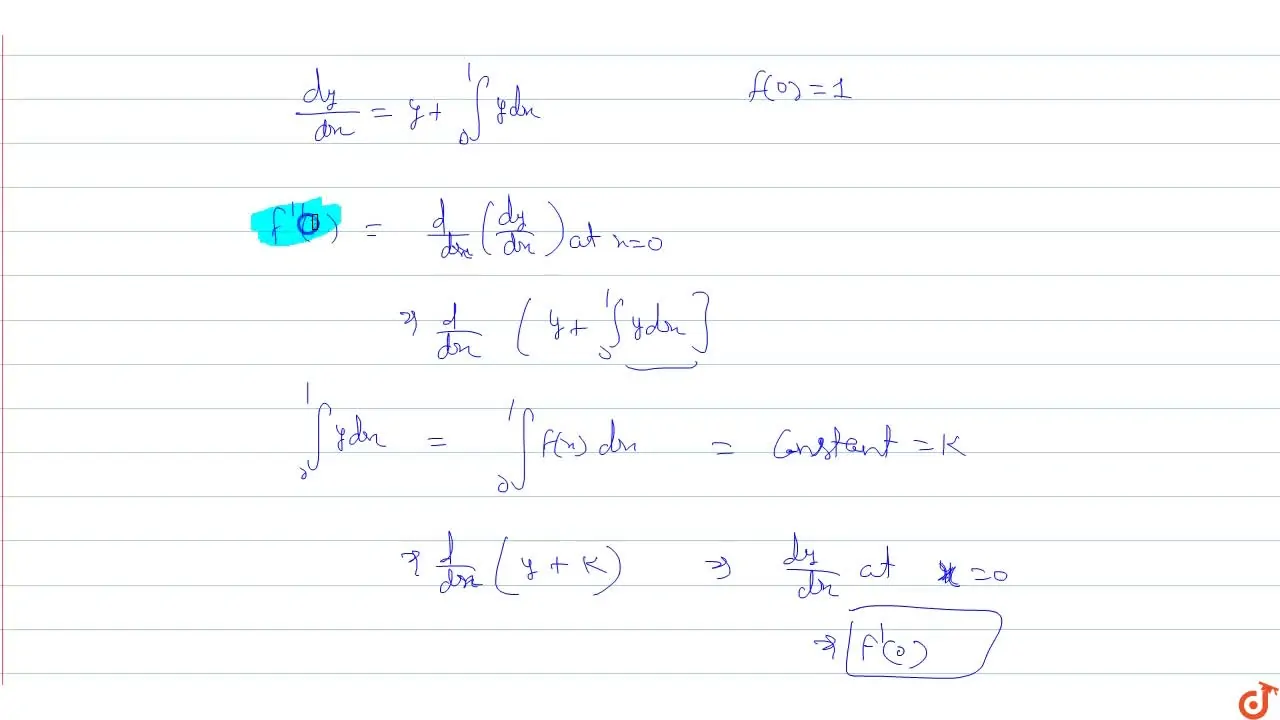 dy/dx = y + ∫₀¹ y dx    f(0) = 1
f'(0) = d/dx (dy/dx) at x=0
⇒ d/dx [y + ∫₀¹ y dx]
∫₀¹ y dx = ∫₀¹ f(x) dx = Constant = K
⇒ d/dx (y + K) ⇒ dy/dx at x=0
⇒ f'(0)